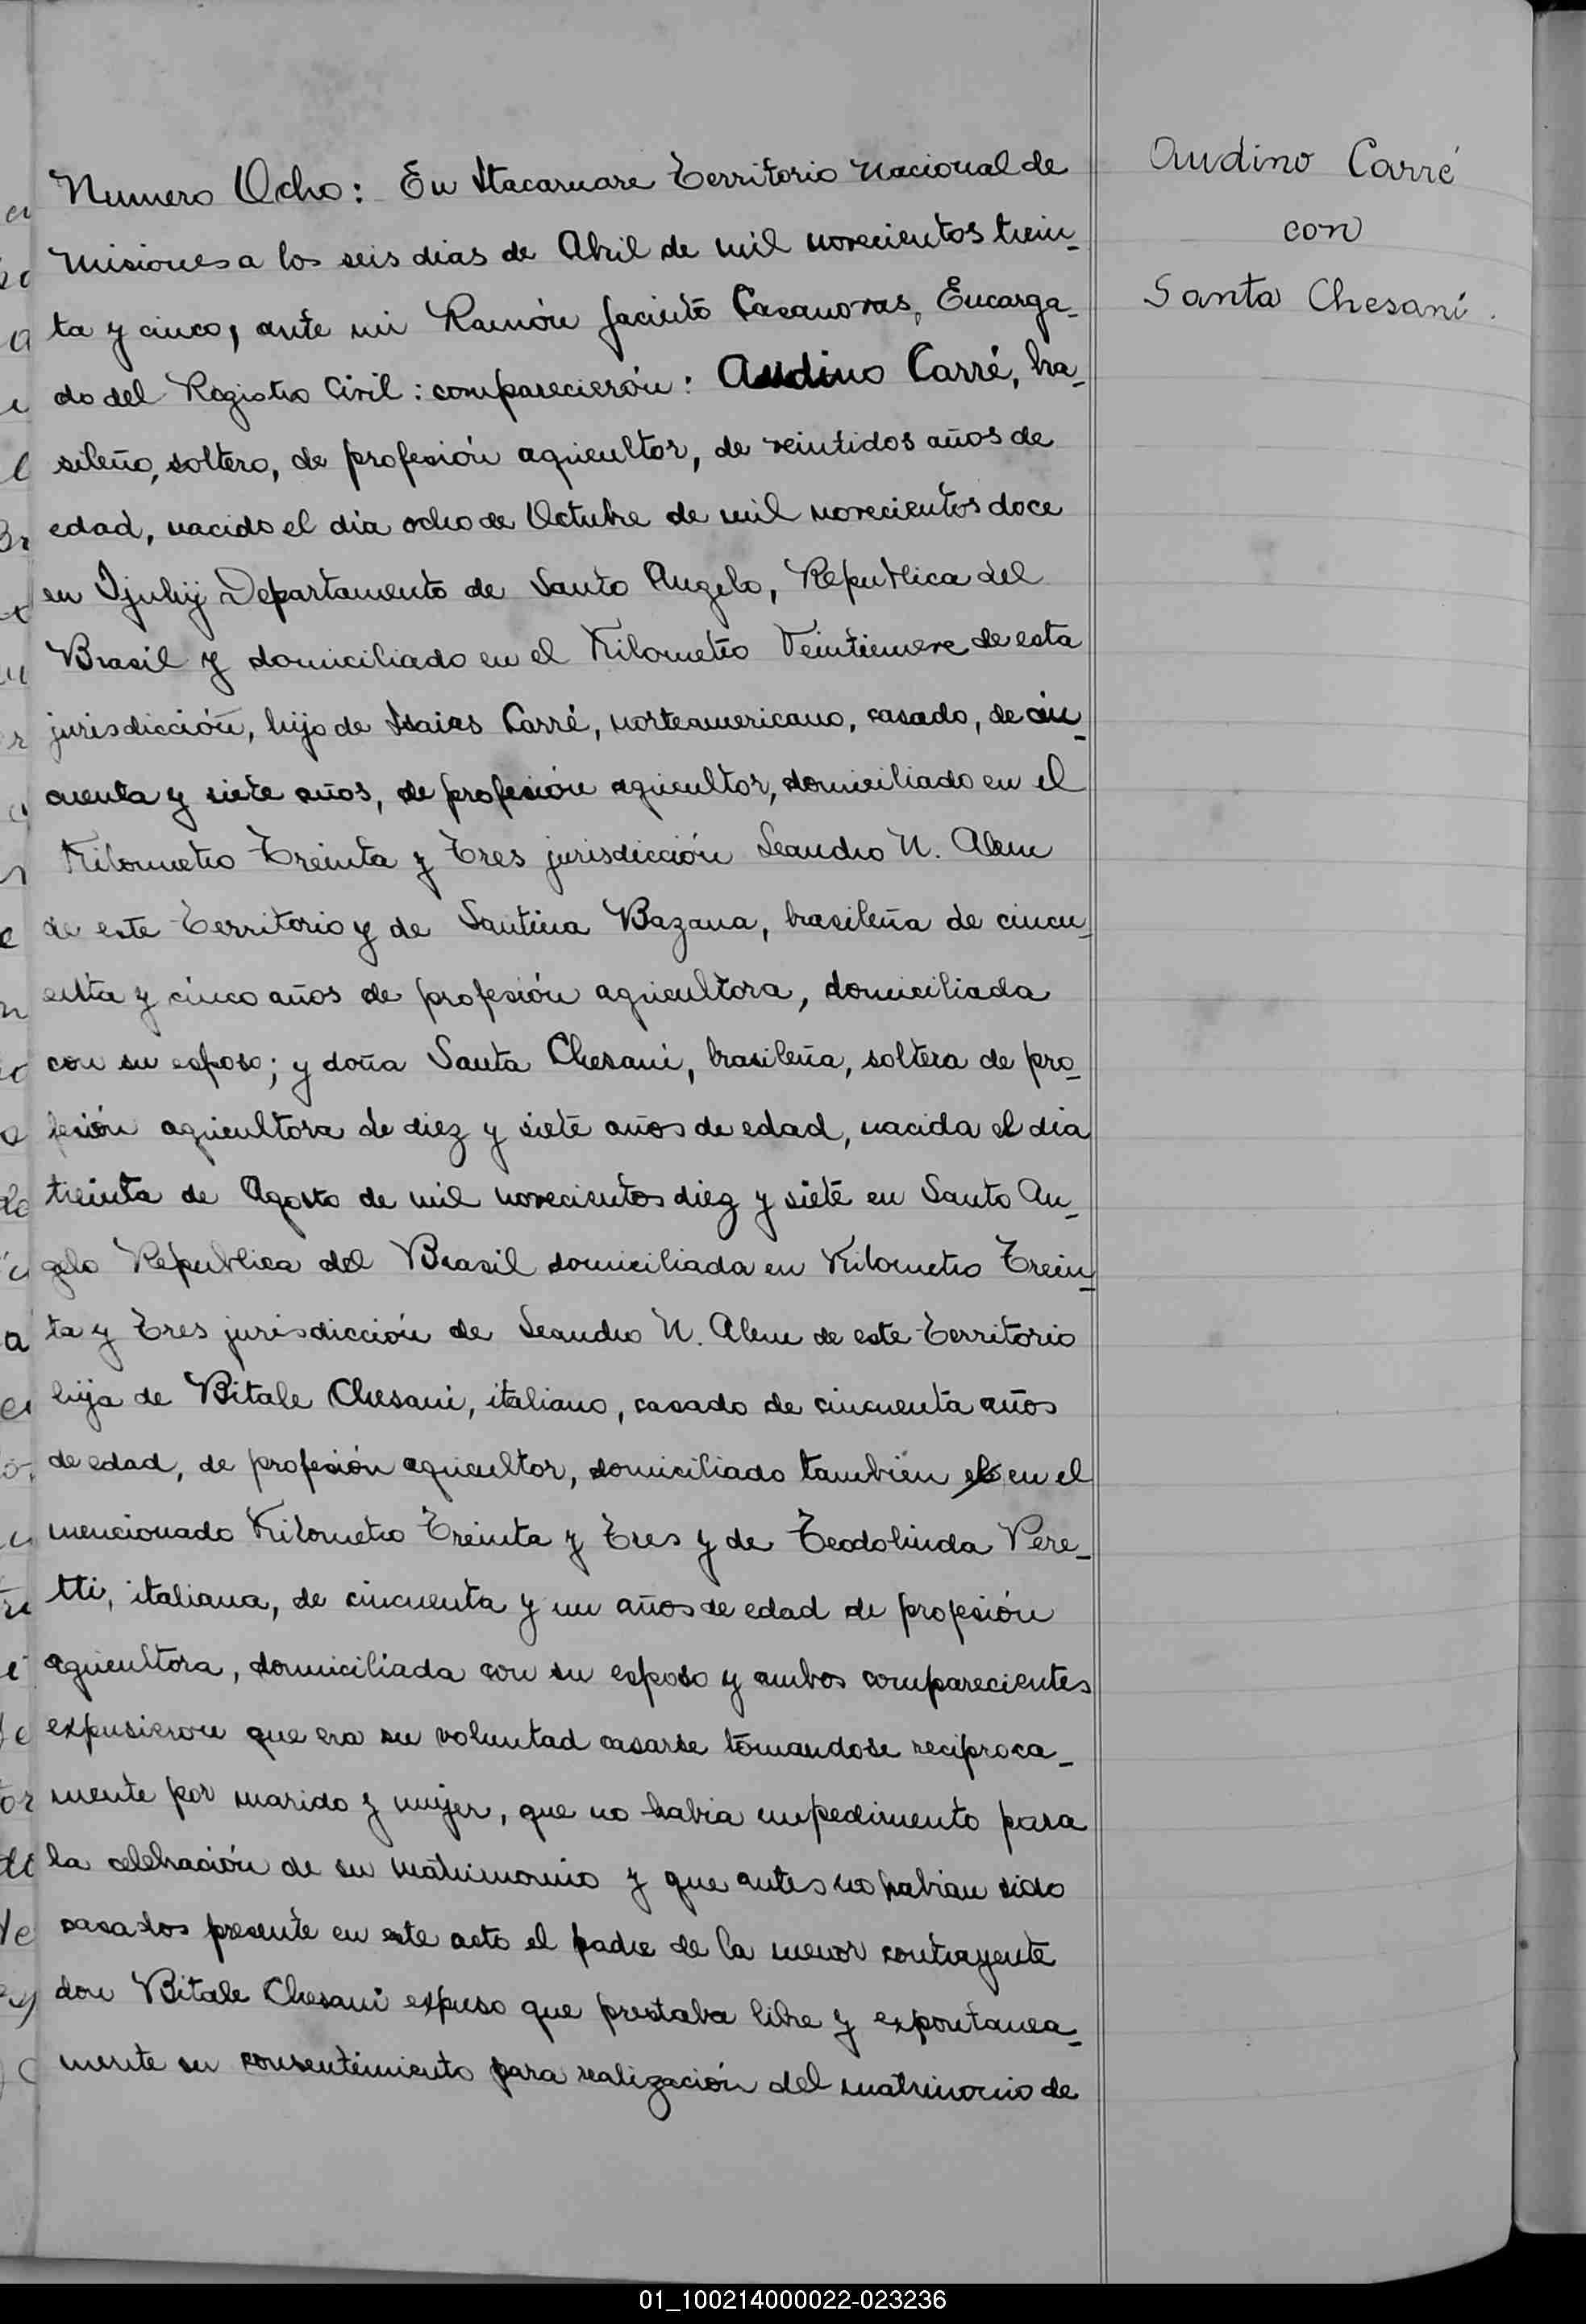 Numero Ocho: En Itacaruare Territorio Nacional de
Misiones a los seis dias de Abril de mil novecientos trein-
ta y cinco, ante mi Ramón Jacinto Casanovas, Encarga-
do del Registro Civil: comparecierón: Audino Carré, bra-
sileño, soltero, de profesión agricultor, de veintidos años de
edad, nacido el dia ocho de Octubre de mil novecientos doce
en Ijuhy Departamento de Santo Angelo, Republica del
Brasil y domiciliado en el Kilometro Veintinueve de esta
jurisdicción, hijo de Isaias Carré, norteamericano, casado, de cin-
cuenta y siete años, de profesión agricultor, domiciliado en el
Kilometro Treinta y Tres jurisdicción Leandro N. Alem
de este Territorio y de Santina Bazana, brasileña de cincu-
enta y cinco años de profesión agricultora, domiciliada
con su esposo; y doña Santa Chesani, brasileña, soltera de pro-
fesión agricultora de diez y siete años de edad, nacida el dia
treinta de Agosto de mil novecientos diez y siete en Santo An-
gelo Republica del Brasil domiciliada en Kilometro Trein-
ta y Tres jurisdicción de Leandro N. Alem de este Territorio
hija de Bitale Chesani, italiano, casado de cincuenta años
de edad, de profesión agricultor, domiciliado tambien en el
mencionado Kilometro Treinta y Tres y de Teodolinda Pere-
tti, italiana, de cincuenta y un años de edad de profesión
agricultora, domiciliada con su esposo y ambos comparecientes
expusieron que era su voluntad casarse tomandose reciproca-
mente por marido y mujer, que no habia impedimento para
la celebración de su matrimonio y que antes no habian sido
casados presente en este acto el padre de la menor contrayente
don Bitale Chesani expuso que prestaba libre y expontanea-
mente su consentimiento para realización del matrimonio de
Audino Carré
con
Santa Chesani.
01_100214000022-023236